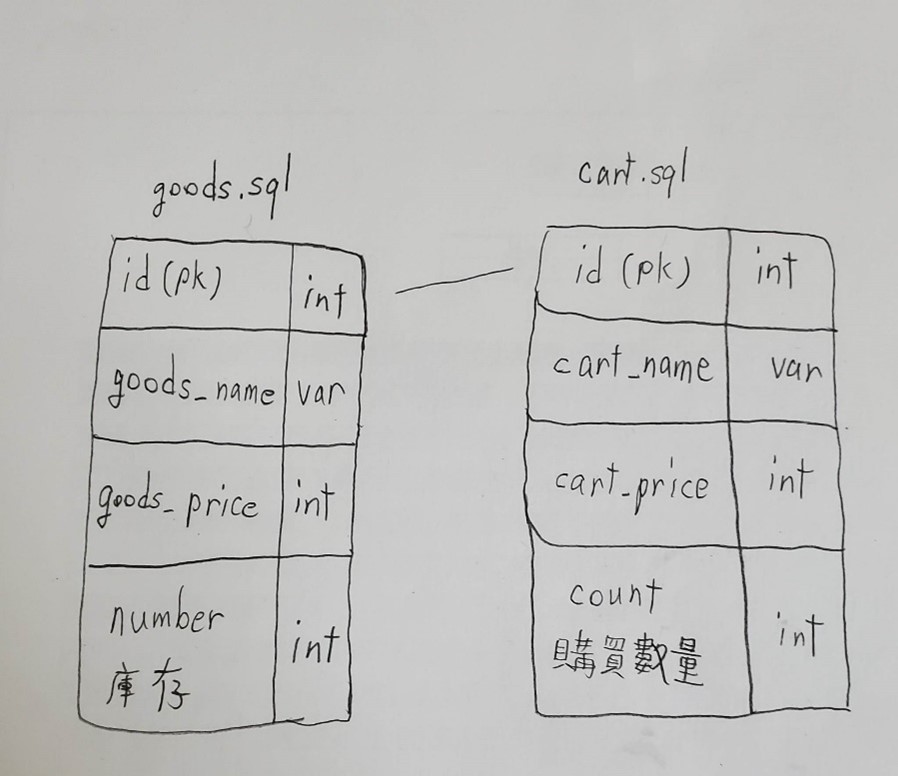 goods.sql
id (pk) int
goods_name var
goods_price int
number
庫存 int
cart.sql
id (pk) int
cart_name var
cart_price int
count
購買數量 int